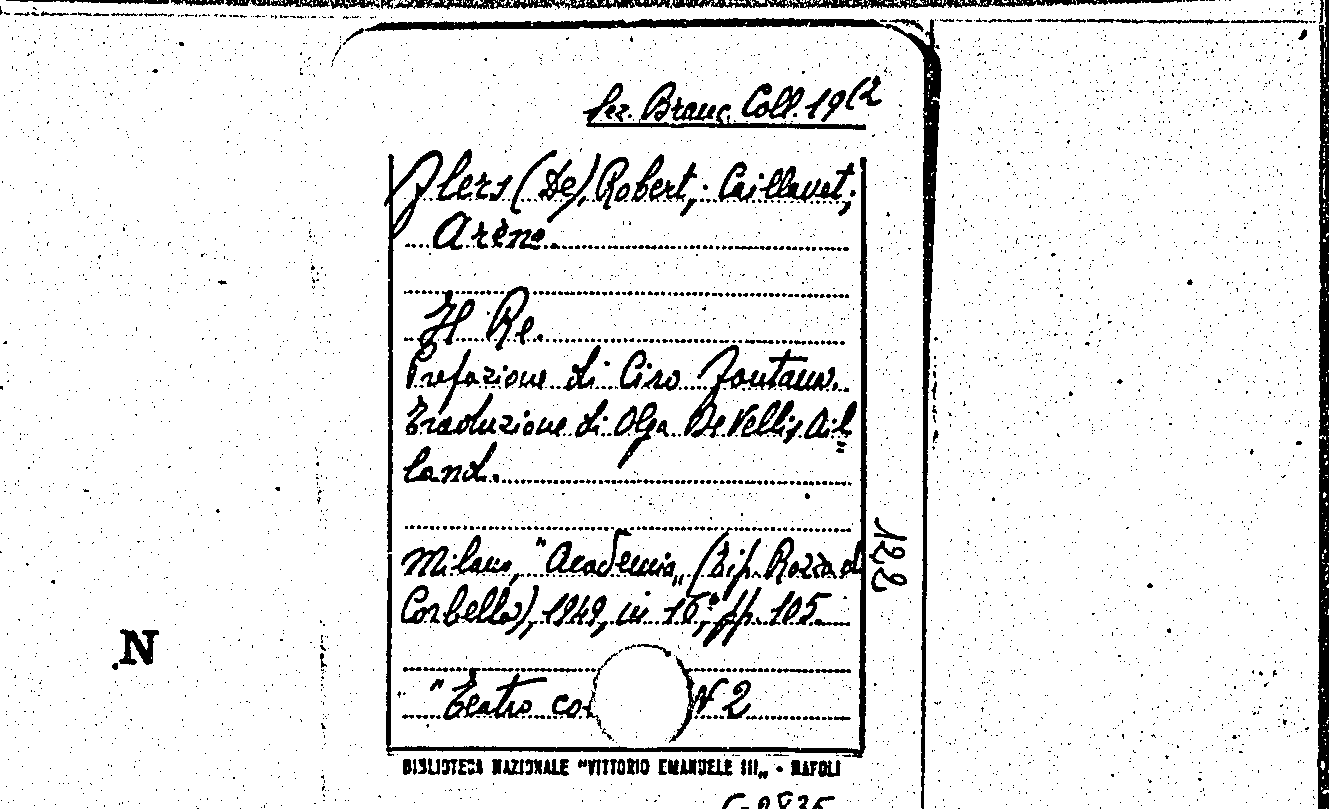 Sez. Branc. Coll. 19(2
Flers (De), Robert; Caillavet;
Arène.
Il Re.
Prefazione di Ciro Fontana.
Traduzione di Olga De Vellis Ail
land.
Milano, "Academia„ (Tip. Rozza di
Corbella), 1949, in 16°, pp. 105.
"Teatro co N 2
122
N
BIBLIOTECA NAZIONALE "VITTORIO EMANUELE III„ - NAPOLI